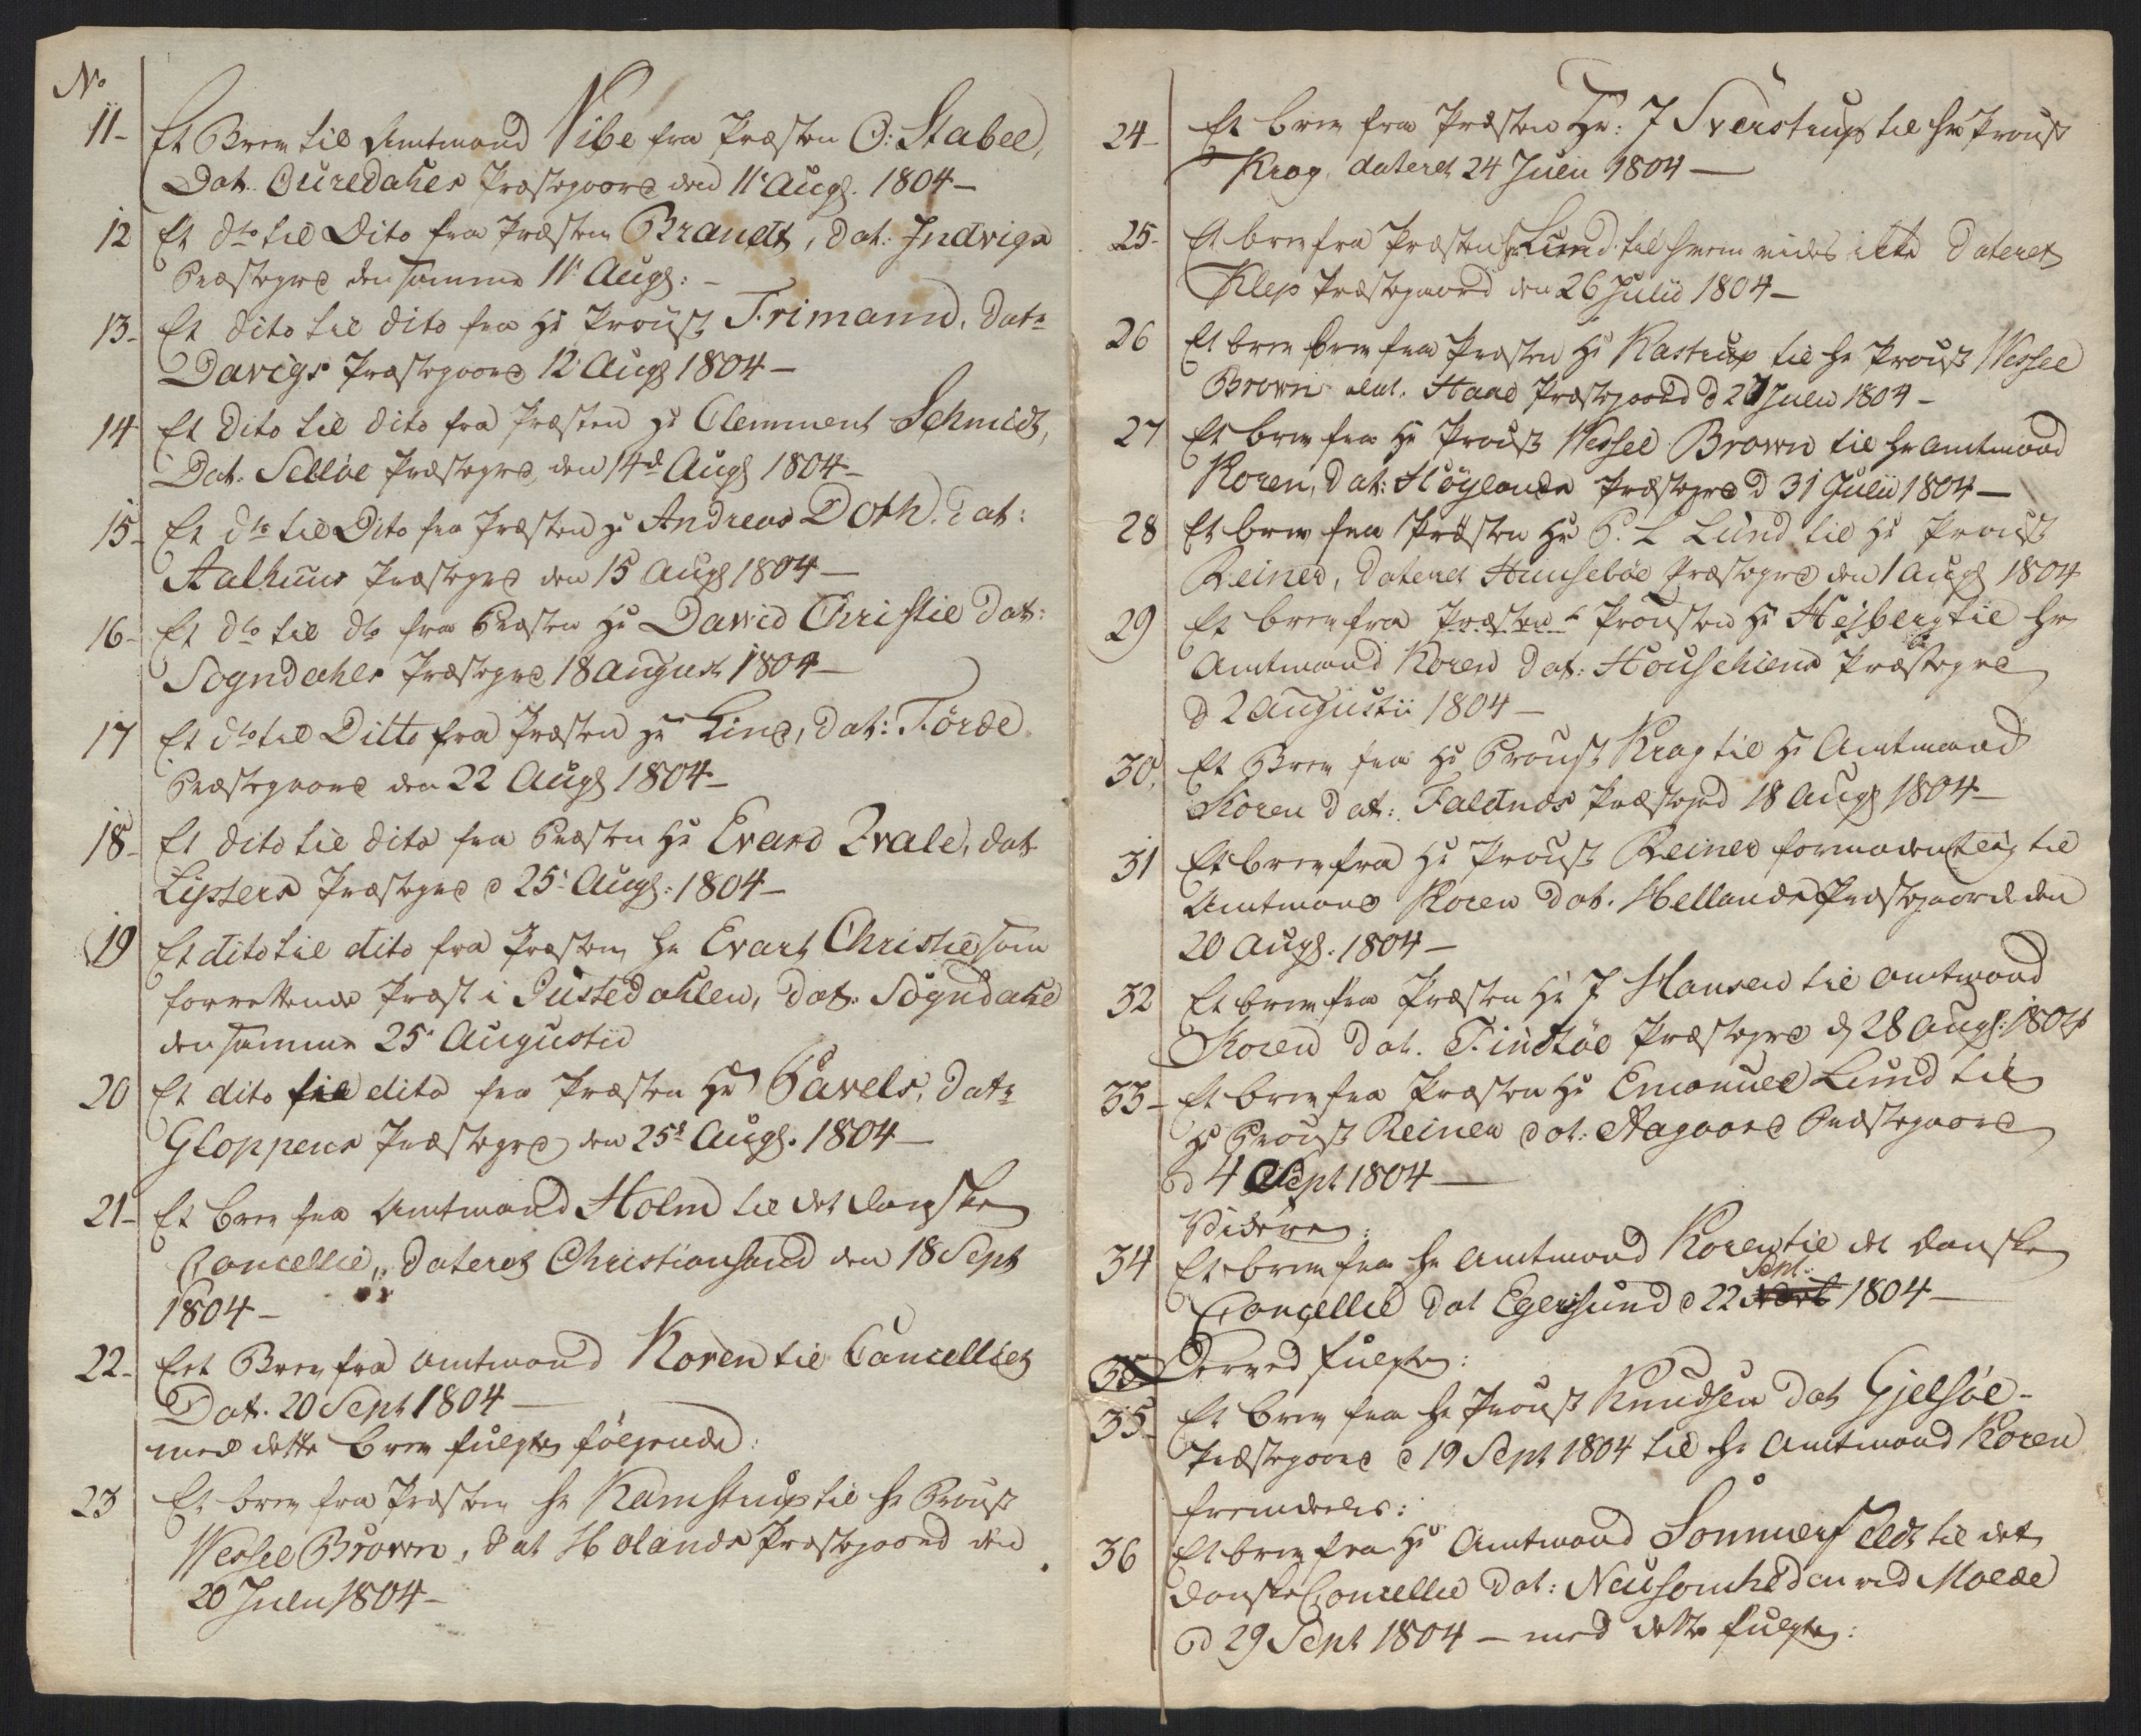 No
11- Et Brev til Amtmand Vibe fra Præsten O: Stabel,
Dat. Ouredahls Præstegaard den 11te Augs. 1804 -
12 Et dto til Dito fra Præsten Brandt, dat: Indvigs
Præstegrd den samme 11te Augs: -
13- Et dito til dito fra Hr Proust Frimann. dat:
Davigs Præstegaard 12te Augs 1804 -
14 Et dito til dito fra Præsten Hr Clemment Schmidt,
Dat: Selløe Præstegrd, den 14de Augs 1804 -
15- Et dto til Dito fra Præsten Hr Andreas Doth. dat:
Aalhuus Præstegrd den 15 Augs 1804 -
16- Et dto til dto fra Præsten Hr David Christie dat:
Sogndahls Præstegrd 18 august 1804 -
17 Et dto til Ditto fra Præsten Hr Lind, dat: Førde
Præstegaard den 22 Augs 1804 -
18- Et dito til dito fra Præsten Hr Evard Qvale, dat
Lysters Præstegrd d 25te Augs: 1804 -
19 Et dito til dito fra Præsten Hr Evart Christie som
forrettende Præst i Justedahlen, dat: Sogndahl
den samme 25te Augustii
20 Et dito til dito fra Præsten Hr Pavels, dat:
Gloppens Præstegrd den 25de Augs. 1804 -
21- Et brev fra Amtmand Holm til det danske
Cancellie, dateret Christiansand den 18 Sept
1804 -
22- Eet Brev fra Amtmand Koren til Cancelliet
Dat. 20 Sept 1804 -
med dette brev fulgte følgende:
23 Et brev fra Præsten Hr Kamstrup til Hr Proust
Wessel Brown, dat Holands Præstegaard den
20 Julii 1804 -
24- Et brev fra Præsten Hr: J Sverstrup til Hr Proust
Krog, dateret 24 Julii 1804 -
25- Et brev fra Præsten Hr Lund til hvem vides ikke dateret
Klep Præstegaard den 26 Julii 1804 -
26 Et brev brev fra Præsten Hr Kastrup til Hr Proust Wessel
Brown dat. Haae Præstegaard d 27 Julii 1804 -
27 Et brev fra Hr Proust Wessel Brown til Hr Amtmand
Koren, dat: Höylands Præstegrd d 31 Julii 1804 -
28 Et brev fra Præsten Hr P. L Lund til Hr Proust
Reiner, dateret Hunsebøe Præstegrd den 1 Augs 1804
29 Et brev fra Præsten Prousten Hr Hejberg til Hr
Amtmand Koren dat: Houschiens Præstegrd
d 2 Augustii 1804 -
30. Et Brev fra Hr Proust Krog til Hr Amtmand
Koren dat: Faldnes Præstegrd 18 Augs 1804 -
31 Et brev fra Hr Proust Reiner formodentlig til
Amtmand Koren dat. Hellands Præstegaard den
20 Augs: 1804 -
32 Et brev fra Præsten Hr J Hansen til Amtmand
Koren dat. Findtøe Præstegrd d 28 Augs: 1804
33- Et brev fra Præsten Hr Emanuel Lund til
Hr Proust Reiner dat: Aagaard Præstegaard
d 4 Sept 1804 -
Videre:
34 Et brev fra Hr Amtmand Koren til det danske
Cancellie dat Egersund d 22 Sept: 1804 -
Derved fulgte:
35- Et brev fra Hr Proust Knudsen dat Gjelsøe-
Præstegaard d 19 Sept 1804 til Hr Amtmand Koren
fremdeeles:
36 Et brev fra Hr Amtmand Sommerfeldt til det
danske Cancellie dat: Neusomheden ved Molde
d 29 Sept 1804 - med dette fulgte: